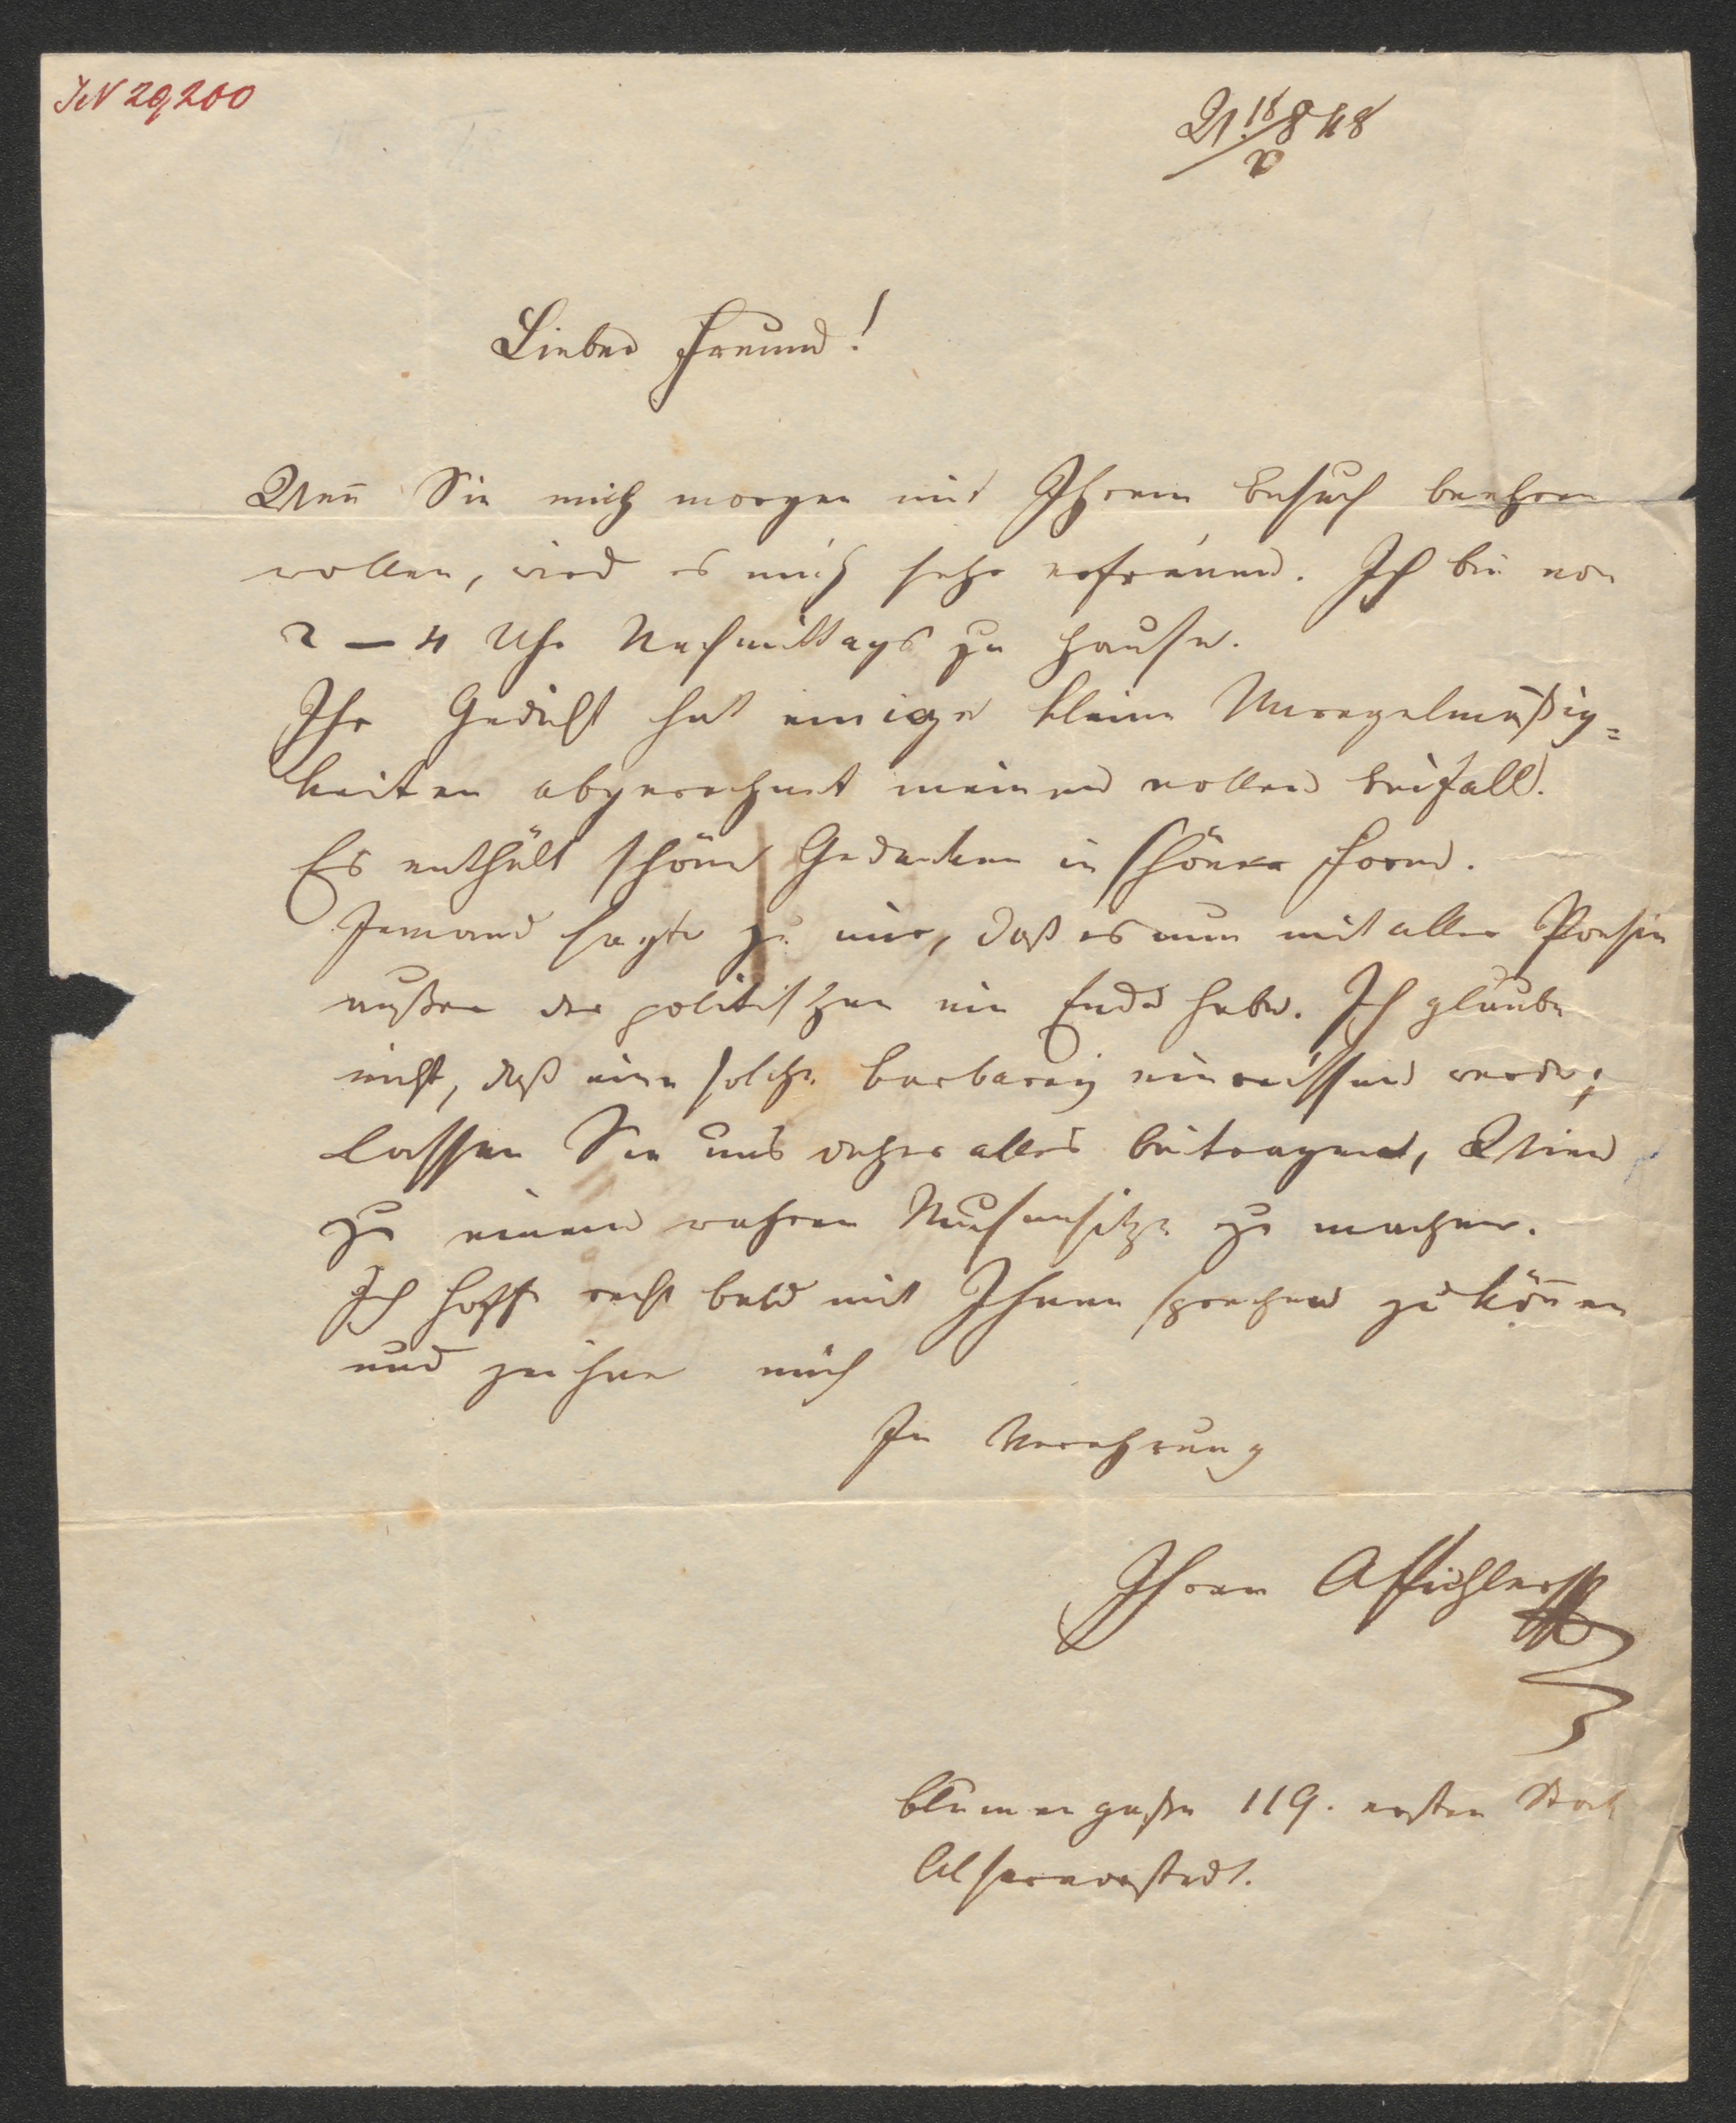 IN 29200
W. 18/8 48
Lieber Freund!
Wen̄ Sie mich morgen mit Ihrem Besuch beehren
wollen, wird es mich sehr erfreuen. Ich bin von
2 – 4 Uhr Nachmittags zu Hause.
Ihr Gedicht hat einige kleine Unregelmäßig=
keiten abgerechnet meinen vollen Beifall.
Es enthält schöne Gedanken in schöner Form.
Jemand sagte zu mir, daß es nun mit aller Poesie
außer der politischen ein Ende habe. Ich glaube
nicht, daß eine solche Barbarey einreissen werde;
lassen Sie uns daher alles beitragen, Wien
zu einem wahren Musensitze zu machen.
Ich hoffe recht bald mit Ihnen sprechen zu kön̄en
und zeichne mich
In Verehrung
Ihren
Blumengasse 119. ersten Stock
Alservorstadt.